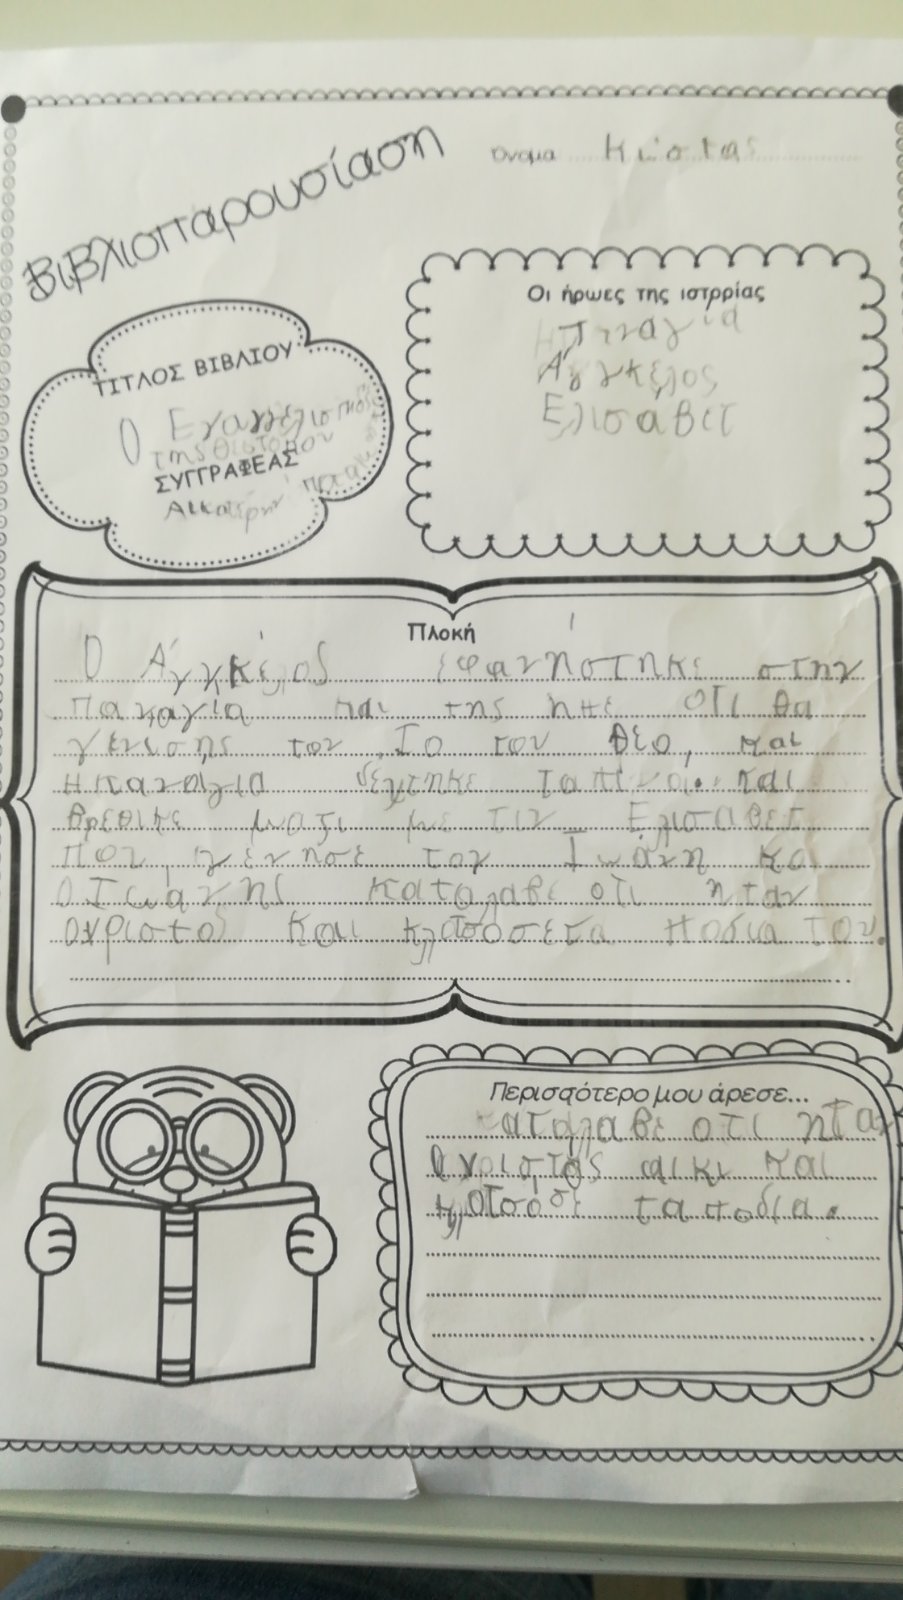 Βιβλιοπαρουσίαση
Όνομα Κώστας
ΤΙΤΛΟΣ ΒΙΒΛΙΟΥ
Ο Εναγγελισμός
της θιοτόκου
ΣΥΓΓΡΑΦΕΑΣ
Αικατερίνη
Οι ήρωες της ιστορίας
Η Παναγία
Άγγκελος
Ελισαβετ
Πλοκή
Ο Άγγκελος εφανηστηκε στην
Παναγία και της ηπε οτι θα
γενισης τον Ιο του θεο, και
η παναγια δεχτηκε ταπινα. και
βρεθικε μαζι με τιν Ελισαβετ
που γενησε τον Ιωάνη και
Ο Ιωάνης καταλαβε οτι ηταν
ο χριστος και κλοτσοσε τα ποδια του.
Περισσότερο μου άρεσε...
καταλαβε οτι ηταν
Ο χριστος εικι και
κλοτσοσε τα ποδια.